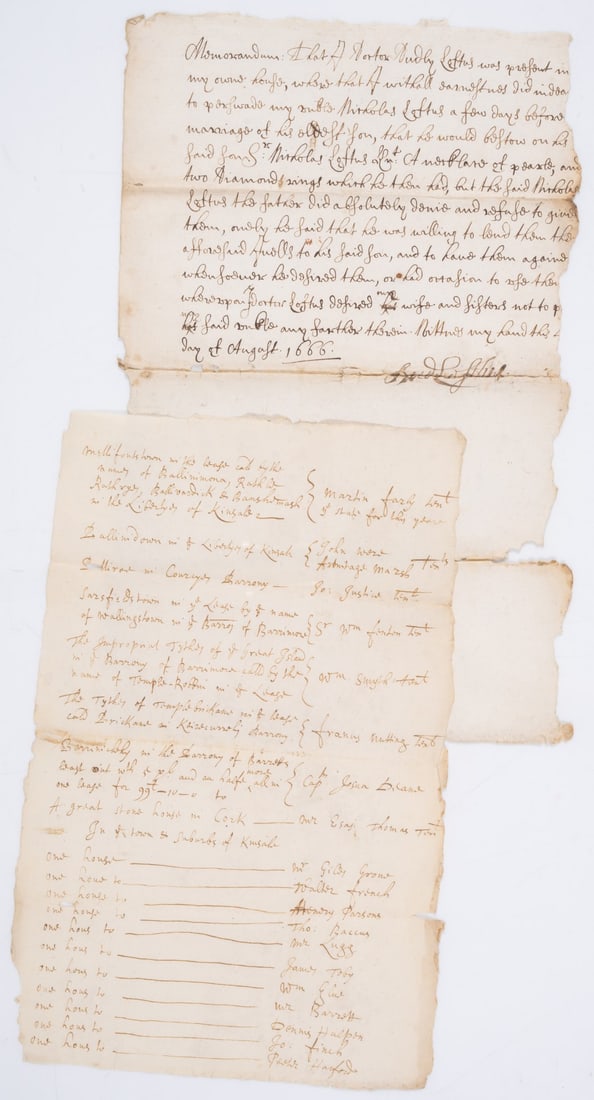 Memorandum: That I Doctor Dudly Loftus was present in
my owne house, where that I withall earnestnes did indea
to perswade my unkle Nicholas Loftus a few days before
marriage of his eldest son, that he would bestow on his
said son Sr. Nicholas Loftus Knt. A necklace of pearle, and
two Diamond rings which he then had, but the said Nichola
Loftus the father did absolutely denie and refuse to give
them, onely he said that he was willing to lend them the
afforesaid Juells to his said son, and to have them againe
whensoever he desired them, or had occasion to use them
whereupon I Doctor Loftus desired my wife and sisters not to p
my said unkle any farther therein. Wittnes my hand the
day of August. 1666.
Mellifontstown in the lease cald by the
names of Ballimmona, Rathle
Rathroe, Ballvordick &
in the Libertyes of Kinsale
Martin farly tent
ye state for this yeare
Ballindown in ye Libertyes of Kinsale
John were
Armitage Marsh Tents
in Courcyes Barrony — Jo: Justice tent
Sarsfidstown in ye Lease by ye name
of Wallingstown in ye Barrony of Barrimore
Sr Wm fenton tent
The Impropriat Tythes of ye Great Island
in ye Barrony of Barrimore cald by the
name of Temple-Robbin in ye Lease
Wm Smyth tent
The Tythes of Templebrickane in ye lease
cald Brickane in Kericurrehy Barrony
francis Nutting tent
in the Barrony of Barretts
least out wth ye and an halfe more all in
one lease for 99L-10-0 to
Capt Josua Deane
A great stone house in Cork — Mr Esay Thomas Tent
In ye town & Suburbs of Kinsale
one house — Mr Giles Grove
one house to — Walter French
one house to — Henery Parsons
one house to — Tho: Baccus
one hous to — Mr Lugg
one hous to — James Toby
one hous to — Wm
one hous to — Mr Barrett
one hous to — Dennis Halpen
one hous to — Jo: Finch
one hous to — Peeter Harford